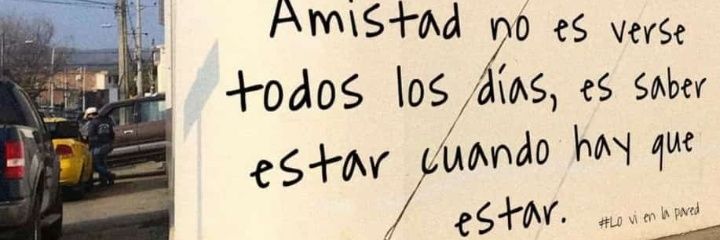 Amistad no es verse
todos los días, es saber
estar cuando hay que
estar.
#Lo vi en la pared